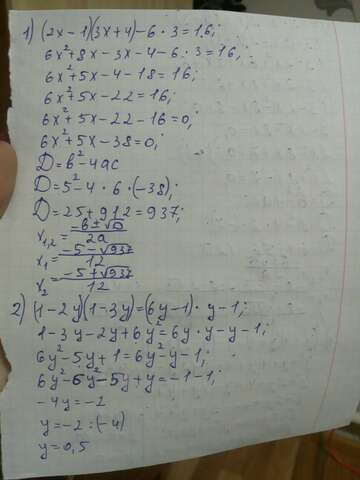 1) (2x-1)(3x+4)-6·3=16;
6x²+8x-3x-4-6·3=16;
6x²+5x-4-18=16;
6x²+5x-22=16;
6x²+5x-22-16=0;
6x²+5x-38=0;
D=b²-4ac
D=5²-4·6·(-38);
D=25+912=937;
x₁,₂=-b±√D/2a
x₁=-5-√937/12
x₂=-5+√937/12
2) (1-2y)(1-3y)=(6y-1)·y-1;
1-3y-2y+6y²=6y·y-y-1;
6y²-5y+1=6y²-y-1;
6y²-6y²-5y+y=-1-1;
-4y=-2
y=-2:(-4)
y=0,5